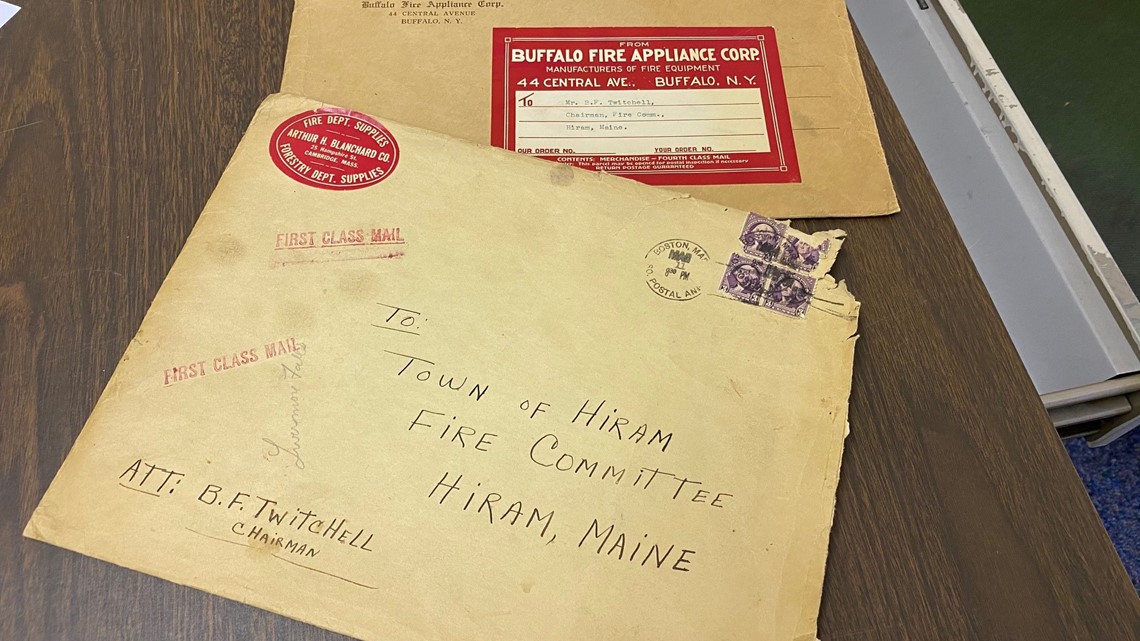 Buffalo Fire Appliance Corp.
44 CENTRAL AVENUE
BUFFALO, N. Y.
FROM
BUFFALO FIRE APPLIANCE CORP.
MANUFACTURERS OF FIRE EQUIPMENT
44 CENTRAL AVE., BUFFALO, N. Y.
TO
Mr. B.F. Twitchell,
Chairman, Fire Comm.,
Hiram, Maine.
OUR ORDER NO. YOUR ORDER NO.
CONTENTS: MERCHANDISE – FOURTH CLASS MAIL
This parcel may be opened for postal inspection if necessary
RETURN POSTAGE GUARANTEED
FIRE DEPT. SUPPLIES
ARTHUR H. BLANCHARD CO.
25 Hampshire St.
CAMBRIDGE, MASS.
FORESTRY DEPT. SUPPLIES
FIRST CLASS MAIL
BOSTON, MA
MAR
11
PM
POSTAL AN
FIRST CLASS MAIL
To:
TOWN OF HIRAM
FIRE COMMITTEE
HIRAM, MAINE
ATT: B.F. TWITCHELL
CHAIRMAN